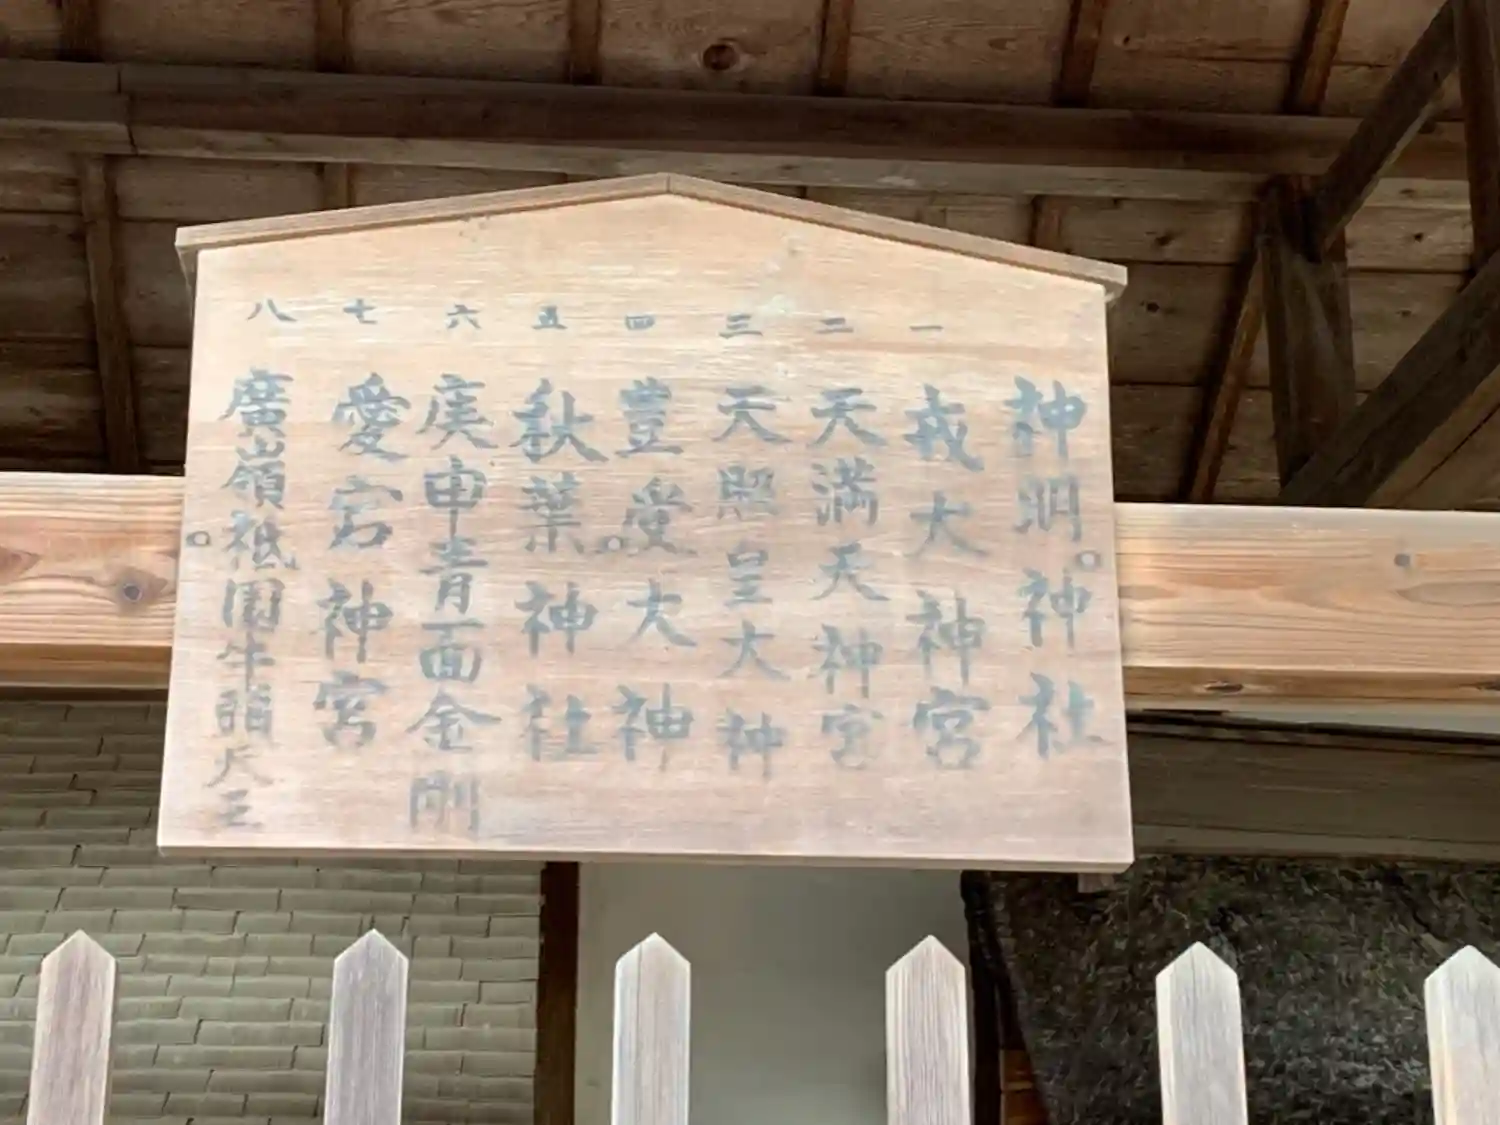 神明神社
一 戎大神宮
二 天満天神宮
三 天照皇大神
四 豊受大神
五 秋葉神社
六 庚申青面金剛
七 愛宕神宮
八 廣嶺祇園牛頭天王